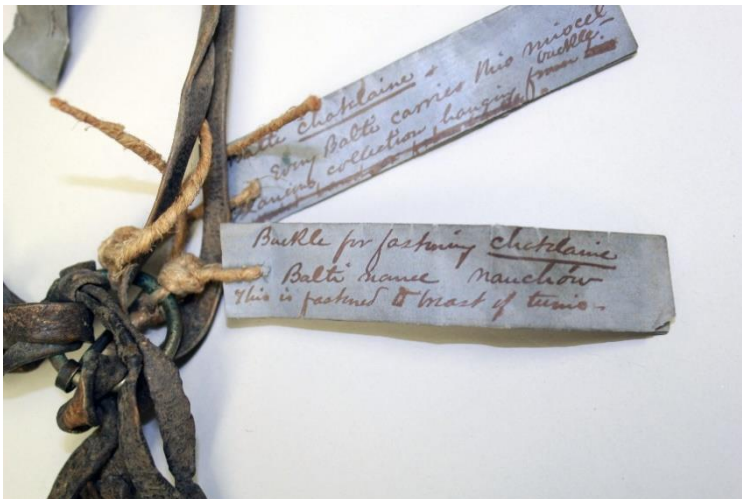 Balti chatelaine.
Every Balti carries this miscel
laneous collection hanging from
buckle.
Buckle for fastening chatelaine
Balti name nauchow
This is fastned to breast of tunic.